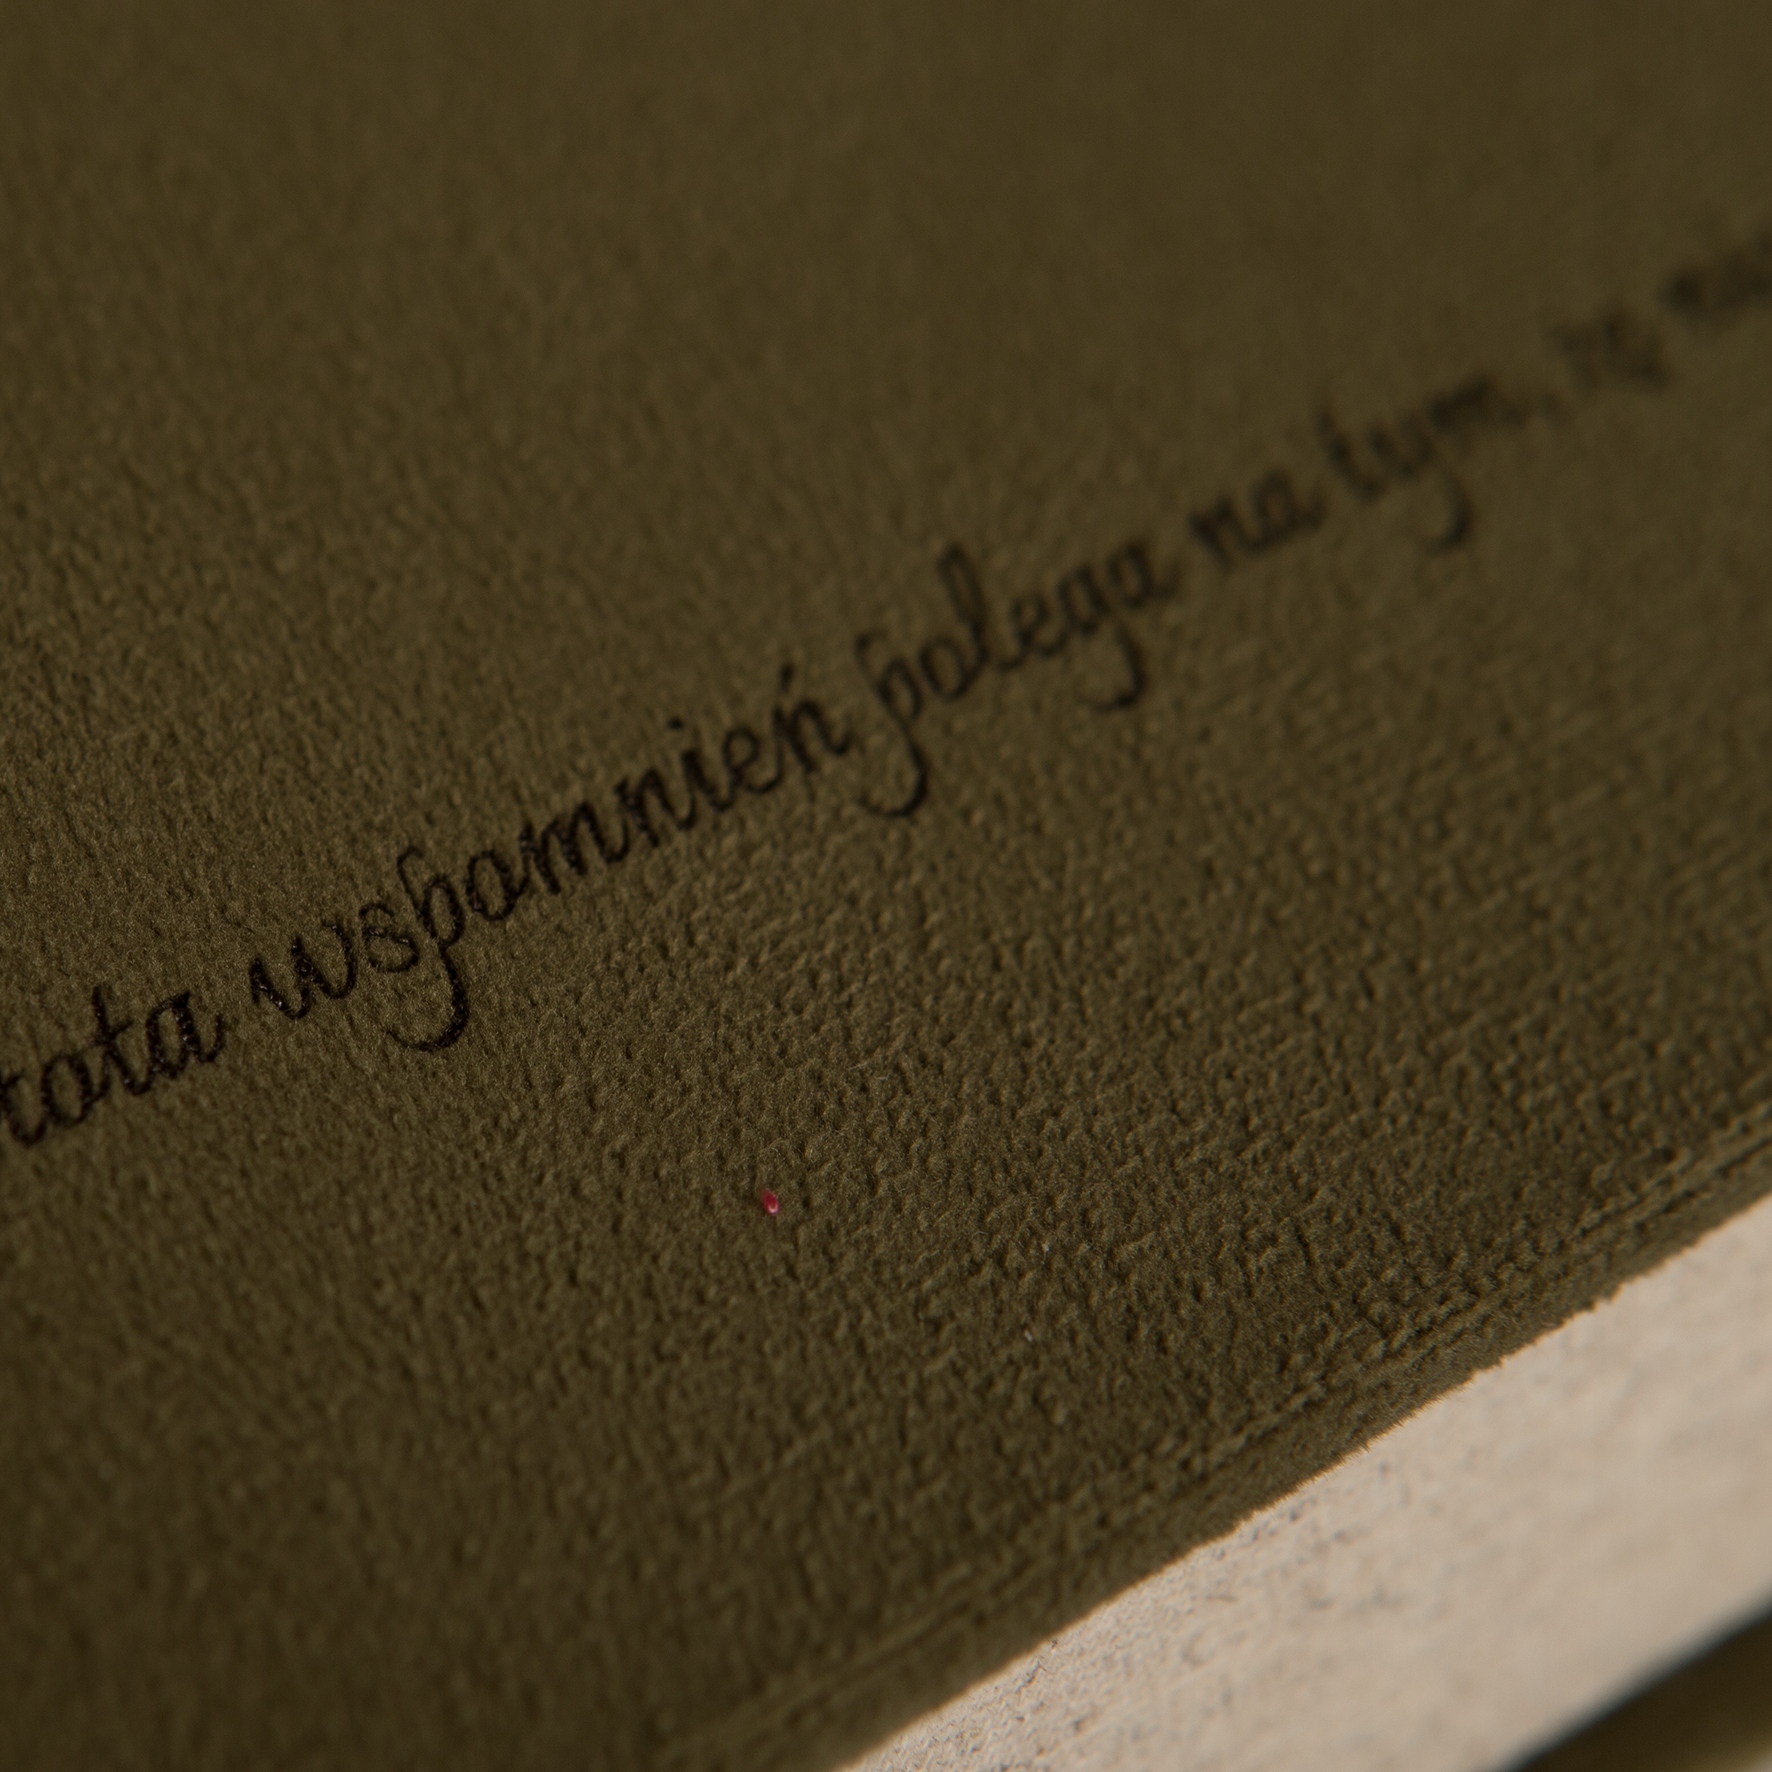 tota wspomnień polega na tym, że